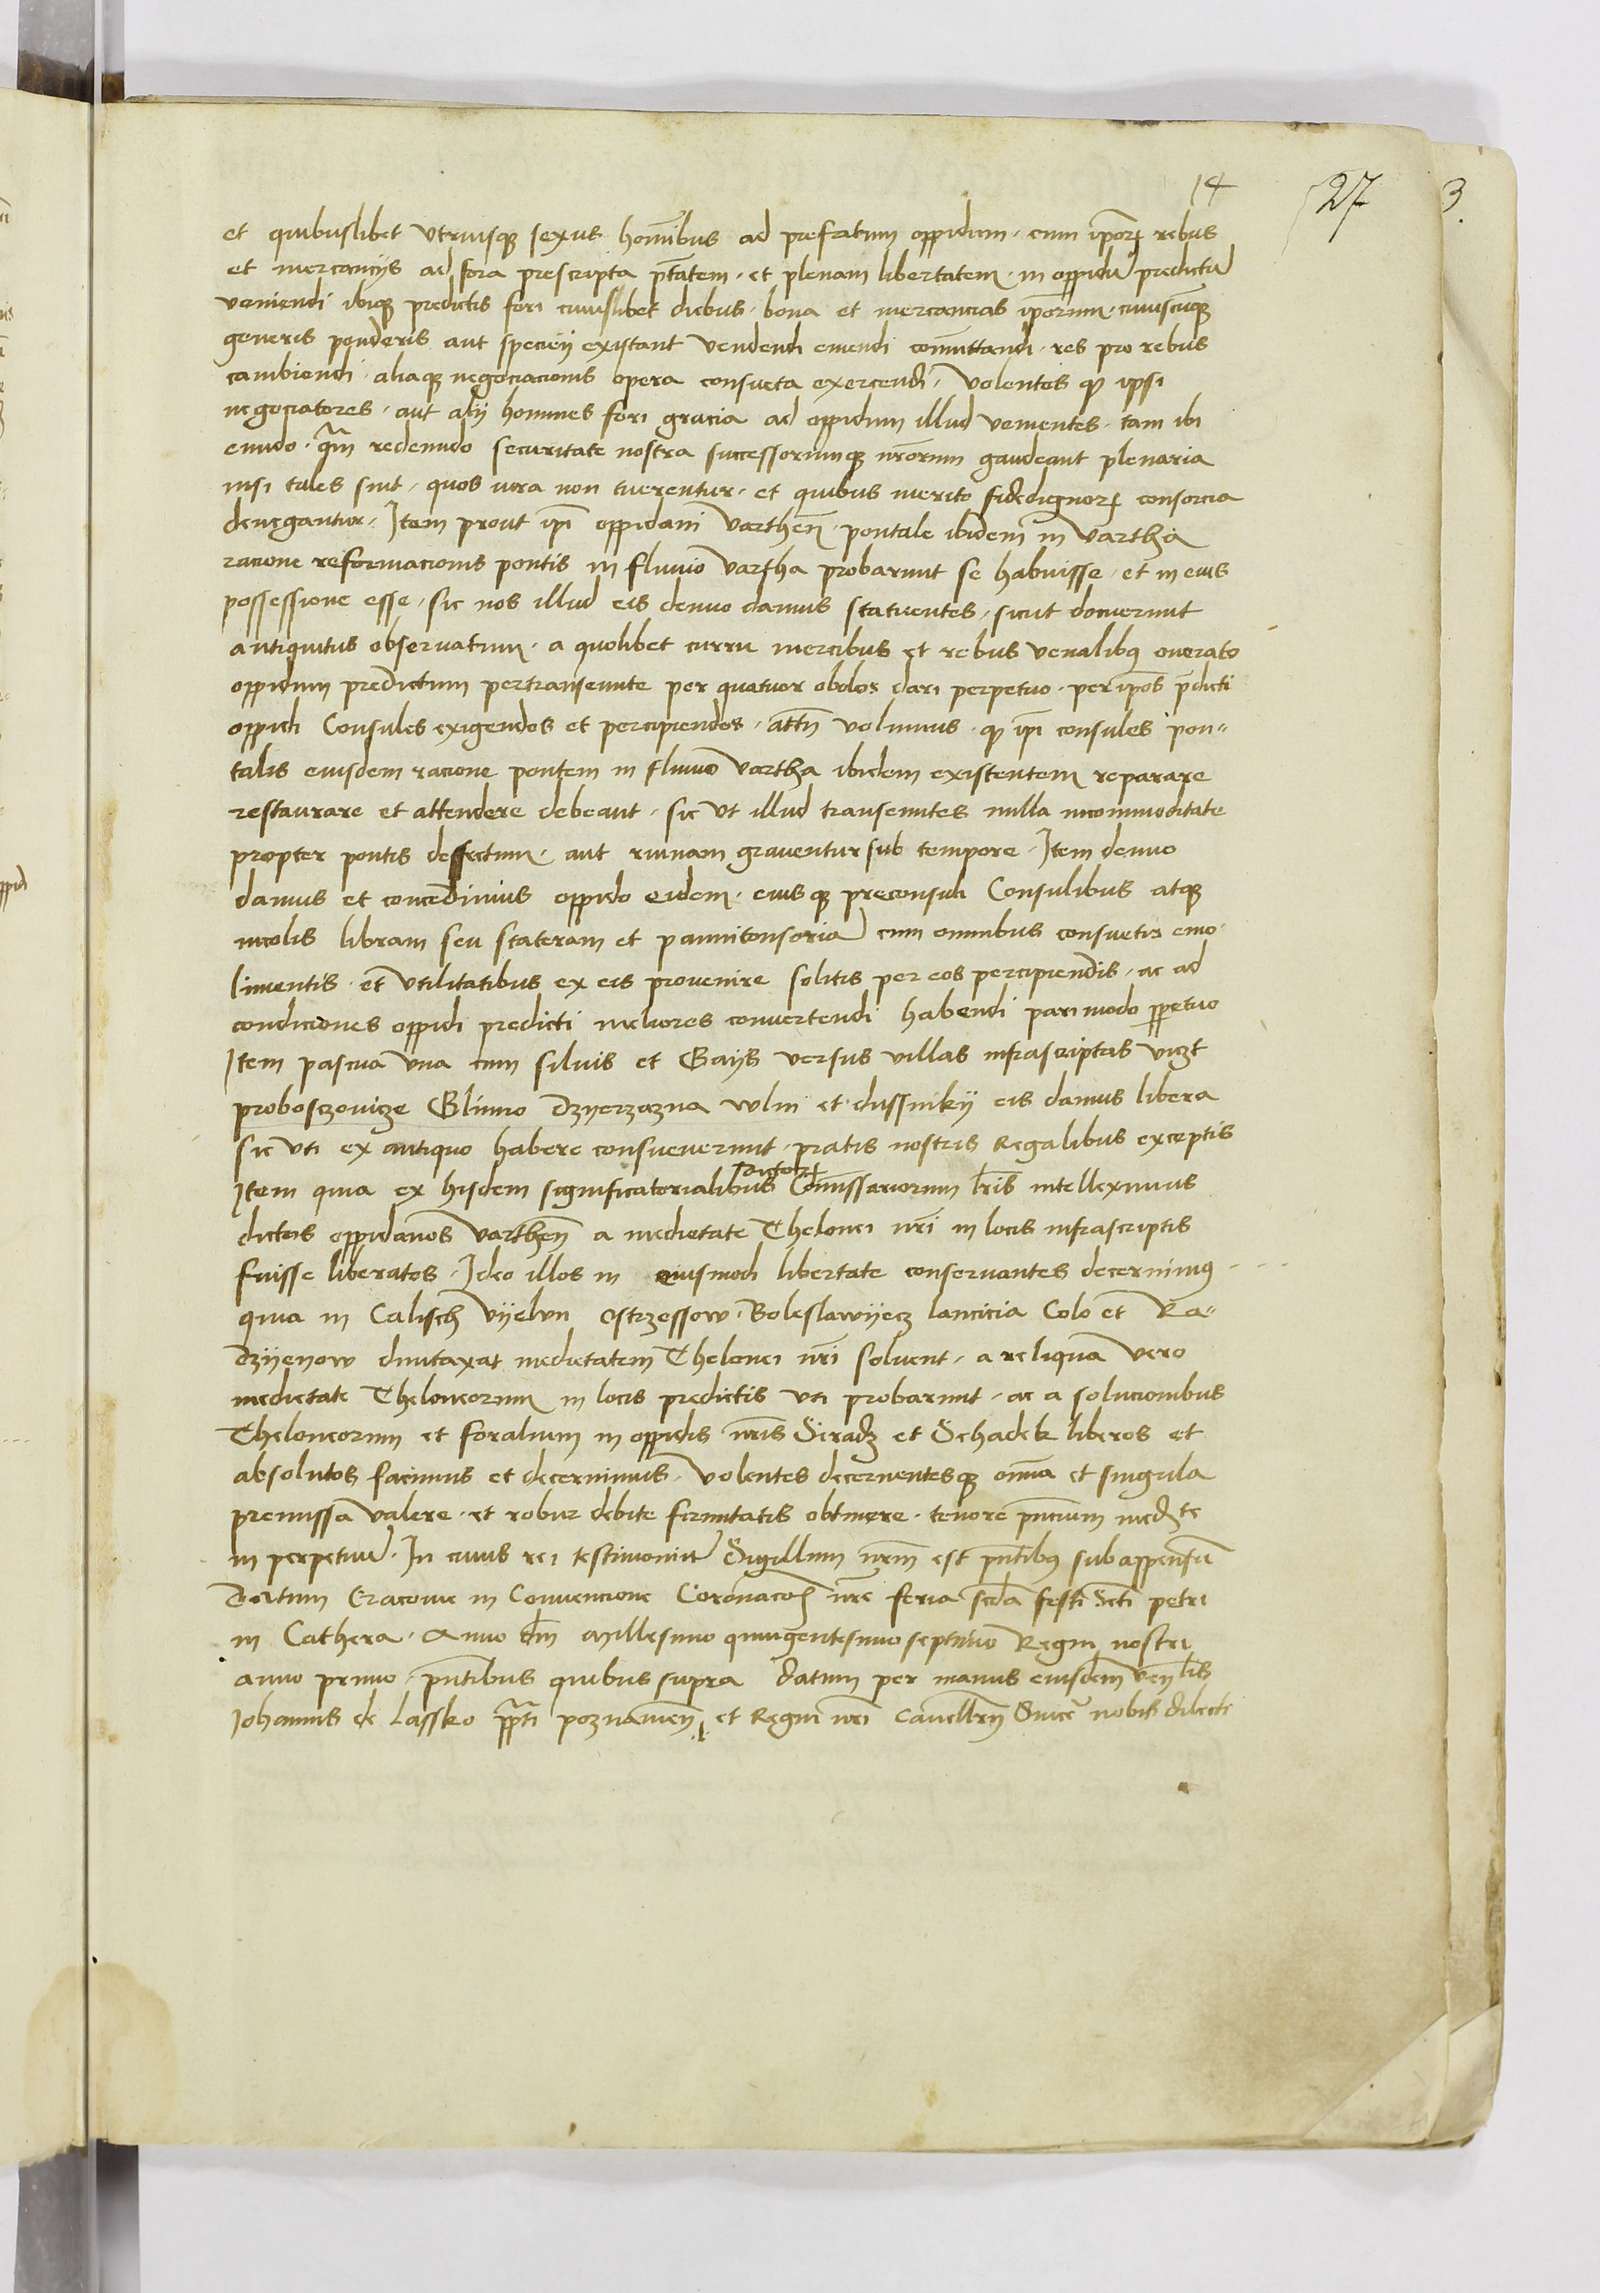 14
27
3
et quibuslibet utriusque sexus hominibus ad prefatum oppidum. cum iporum rebus
et mercanciis ad fora prescripta ptatem. et plenam libertatem. in oppidu predictu
veniendi ibique predictis fori cuiuslibet diebus. bona et mercancias iporum. cuiuscunque
generis ponderis aut speciei existant vendendi emendi committandi. res pro rebus
cambiendi. aliaque negociacionis opera consueta exercendi. Volentes quod ipsi
negociatores. aut alij homines fori gracia ad oppidum illud venientes. tam ibi
eundo. quam redeundo securitate nostra successorumque nrorum gaudeant plenaria
nisi tales sint. quos iura non tuerentur. et quibus merito fidedignorum consorcia
denegantur. Item prout ipi oppidani Varthen. pontale ibidem in Vartha
racione reformacionis pontis in fluvio Vartha probarunt se habuisse. et in eius
possessione esse. sic nos illud eis denuo damus statuentes. sicut docuerunt
antiquitus observatum. a quolibet curru mercibus et rebus venalibus onerato
oppidum predictum pertranseunte per quatuor obolos dari perpetuo. per ipos pdicti
oppidi Consules exigendos et percipiendos. attn volumus. quod ipi consules pon-
talis eiusdem racione pontem in fluvio Vartha ibidem existentem reparare
restaurare et attendere debeant. sic ut illud transeuntes nulla incommoditate
propter pontis deffectum. aut ruinam graventur sub tempore. Item denuo
damus et concedimus oppido eidem. eiusque preconsuli Consulibus atque
incolis libram seu stateram et pannitonsoria cum omnibus consuetis emo-
limentis. et utilitatibus ex eis provenire solitis per eos percipiendis. ac ad
condiciones oppidi predicti meliores convertendi habendi pari modo ppetuo
Item pascua una cum silvis et Gaijs versus villas infrascriptas viczt
proboszczovicze Glinno Dzyerzazna wlin et dussnikij eis damus libera
sic uti ex antiquo habere consueverunt. pratis nostris Regalibus exceptis
Item quia ex hisdem significatorialibus dictorum Comissariorum lris intelleximus
dictos oppidanos Varthen a medietate Thelonei nri in locis infrascriptis
fuisse liberatos. Ideo illos in eiusmodi libertate conservantes decernimus
quia in Calisch Vyelun Ostrzessow. Boleslawyecz lancicia Colo et Ra-
dzyeyow duntaxat medietatem Thelonei nri solvent. a reliqua vero
medietate Theloneorum in locis predictis uti probarunt. ac a solucionibus
Theloneorum et foralium in oppidis nris Siradz et Schadek liberos et
absolutos facimus et decernimus. Volentes decernentesque omnia et singula
premissa valere. et robur debite firmitatis obtinere. tenore pncium medzte
in perpetuu. In cuius rei testimoniu Sigillum nrm est pntibus subappensu
Datum Cracovie in Convencione Coronacois nre feria scda festi Scti petri
in Cathera. Anno dm Millesimo quingentesimo septimo Regni nostri
anno primo. pntibus quibus supra datum per manus eiusdem venlis
Iohannis de Lassko ppti poznanien. et Regni nri Cancellarij Sincere nobis dilecti